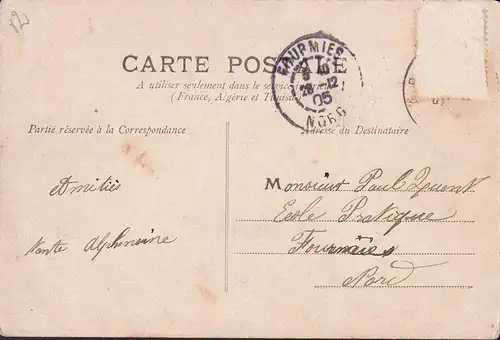 CARTE POSTALE
A utiliser seulement dans le service
(France, Algérie et Tunisie)
FOURMIES
28 12
05
NORD
Partie réservée à la Correspondance
Adresse du Destinataire
Amitiés
Tante Alphonsine
Monsieur Paul
Ecole Pratique
Fourmies
Nord